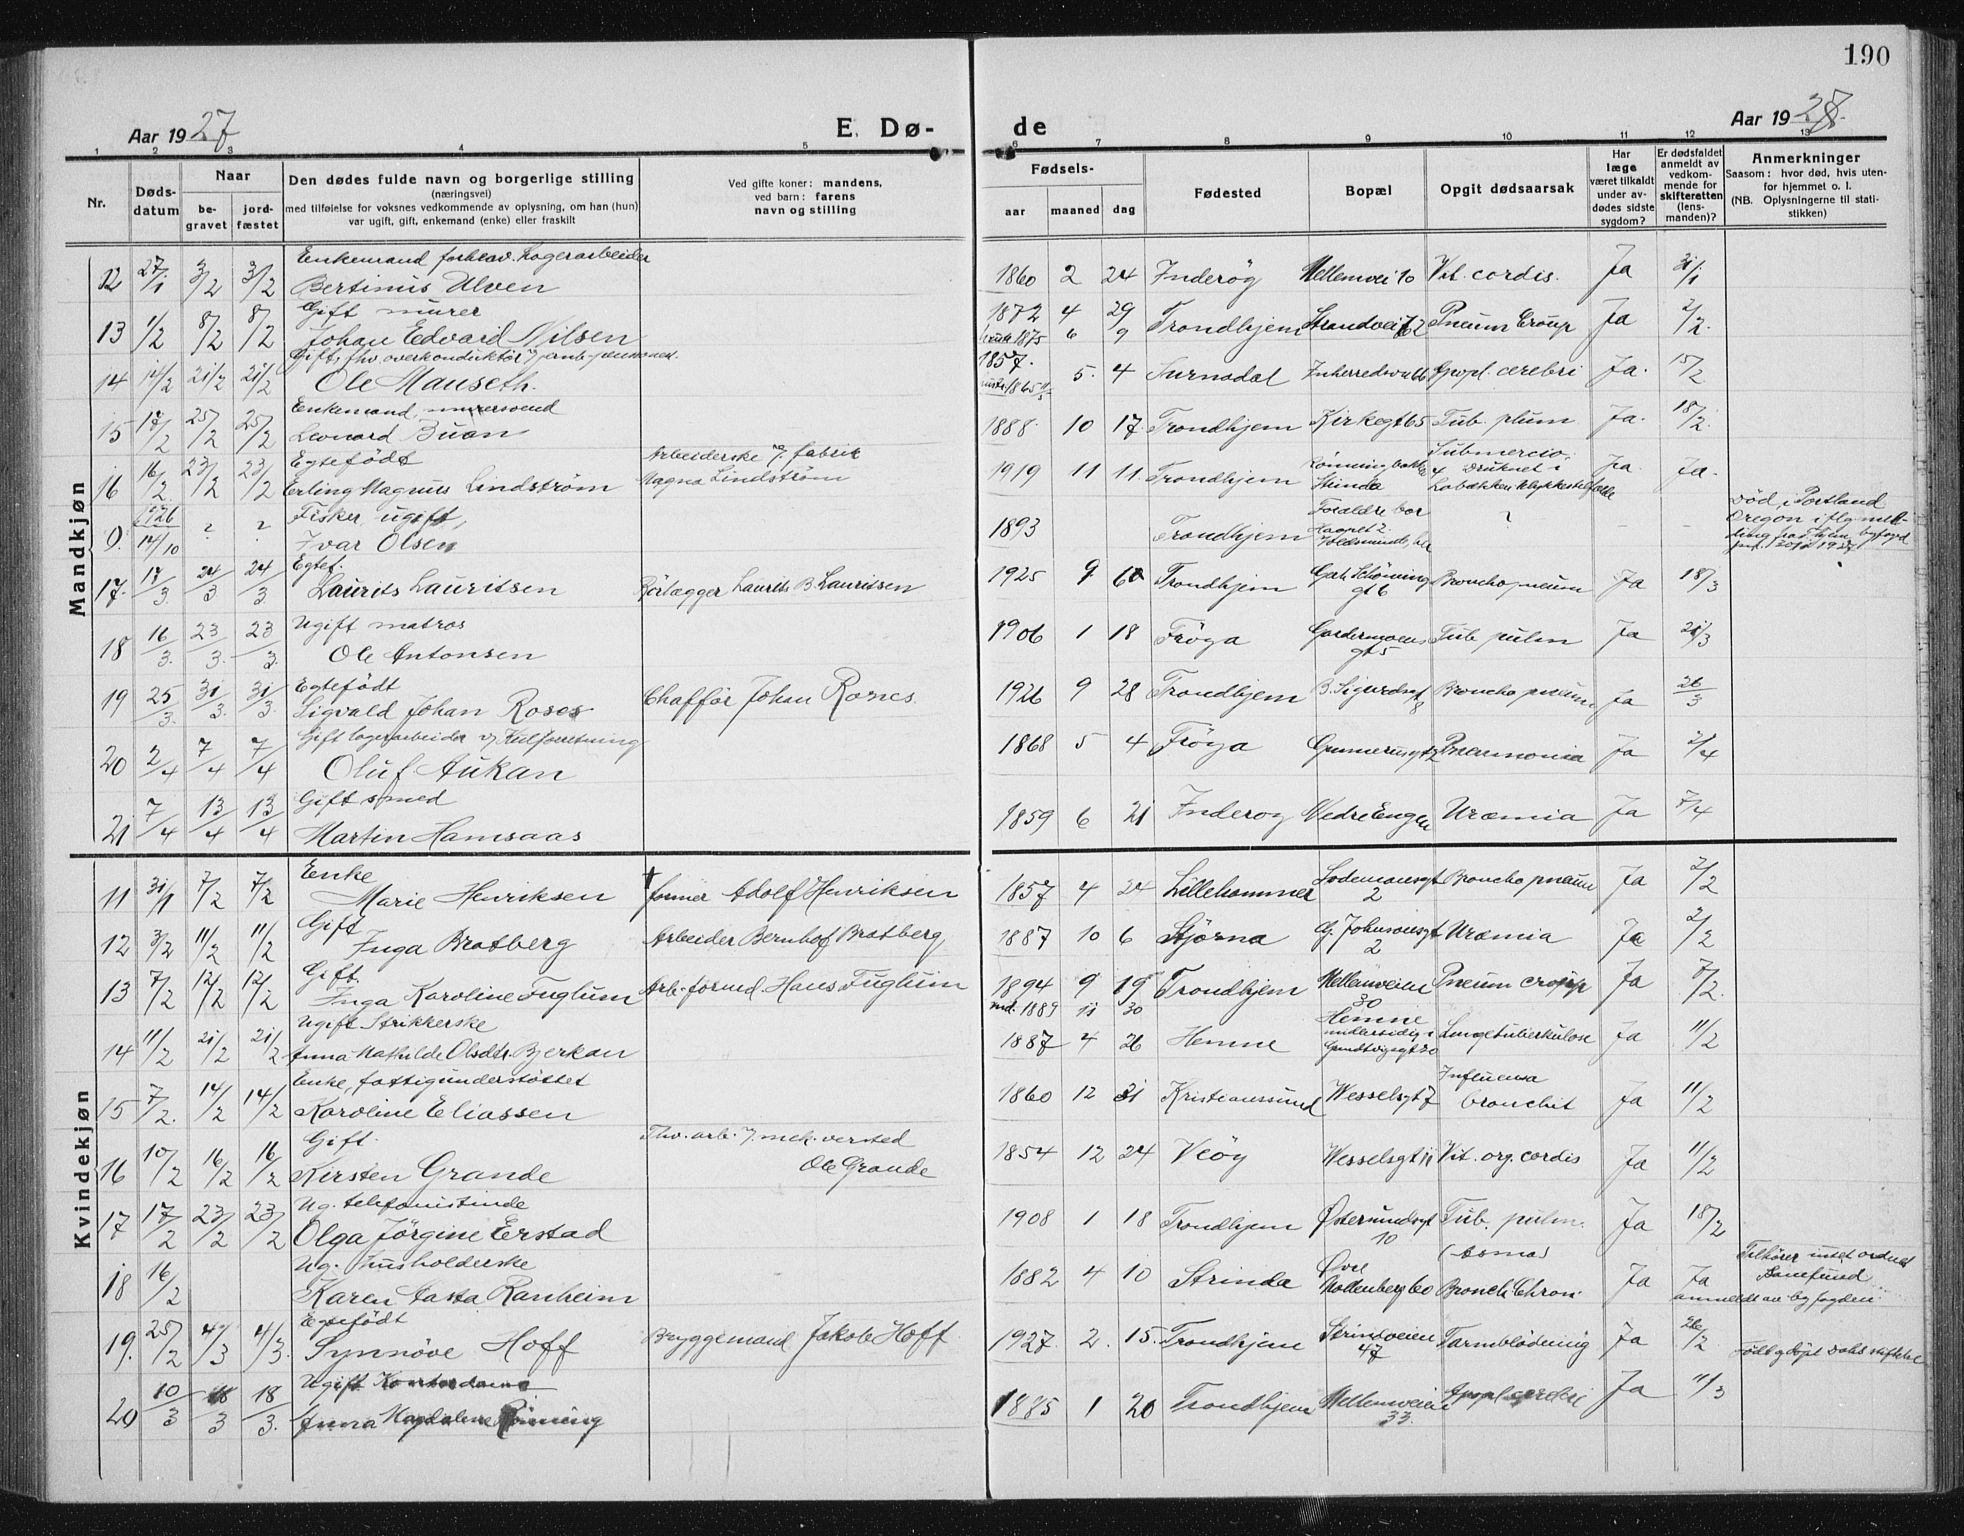 190
Aar 1927
E. Dø-
de
Aar 1927.
1 2 3 4 5 6 7 8 9 10 11 12 13
Nr.
Døds-
datum
Naar
be-
gravet
jord-
fæstet
Den dødes fulde navn og borgerlige stilling
(næringsvei)
med tilføielse for voksnes vedkommende av oplysning, om han (hun)
var ugift, gift, enkemand (enke) eller fraskilt
Ved gifte koner: mandens,
ved barn: farens
navn og stilling
Fødsels-
aar
maaned
dag
Fødested
Bopæl
Opgit dødsaarsak
Har
læge
været tilkaldt
under av-
dødes sidste
sygdom?
Er dødsfaldet
anmeldt av
vedkom-
mende for
skifteretten
(lens-
manden)?
Anmerkninger
Saasom: hvor død, hvis uten-
for hjemmet o. l.
(NB. Oplysningerne til stati-
stikken)
Mandkjøn
Enkemand forhenv. lagerarbeider
12 27/1 3/2 3/2 Bertinus Ulven 1860 2 24 Inderøy Mellemvei 10 Vit. cordis. Ja 31/1
Gift murer
13 1/2 8/2 8/2 Johan Edvard Nilsen 1872 4 29 Trondhjem Strandvei 62 Pneum Croup Ja 2/2.
hustr. 1875 6 9
Gift, fhv overkonduktør v/ jernb. pensioner.
14 14/2 21/2 21/2 Ole Mauseth. 1857. 5. 4 Surnadal Inherredsv. 66 Apopl. cerebri Ja. 15/2
Enkemand, murersvend
15 17/2 25/2 25/2 Leonard Buan 1888. 10 17 Trondhjem Kirkegt 65 Tub. plum Ja. 18/2.
Egtefödt Arbeiderske v. fabrik
16 16/2. 23/2 23/2 Erling Magnus Lindström Magna Lindström 1919 11 11. Trondhjem Strinda Submercio. Druknet i Ja. Ja.
1926 Fisker ugift,
9. 14/10 ? ? Ivar Olsen 1893 Trondhjem Forældre bor ? - -
Död i Portland
Oregon iflg mel-
Egtef.
17. 17/3. 24/3 24/3 Laurits Lauritsen Rörlægger Laurits B. Lauritsen 1925 9 6 Trondhjem Gerh. Schöning gt 6 Broncho pneum Ja 18/3
Ugift matros
18 16/3. 23/3. 23/3. Ole Antonsen 1906 1 18 Fröya Gardermoens gt 5 Tub. pulm Ja 21/3
Egtefödt
19 25/3. 31/3. 31/3. Sigvald Johan Roses Chaffør Johan Rones. 1926 9 28 Trondhjem B. Sigurdsgt 8 Broncho pneum Ja 26/3
Gift lagerarbeider v/ Kulforretning
20 2/4 7/4 7/4 Oluf Aukan 1868 5 4 Fröya Gunnerusgt 2 Pneumonia Ja 2/4
Gift smed
21 7/4 13/4 13/4 Martin Hamsaas 1859 6 21 Inderøy Nedre Enggt Uræmia Ja 7/4
Kvindekjøn
Enke
11 31/1 7/2 7/2 Marie Henriksen † former Adolf Henriksen 1857 4 24 Lillehammer Lodemannsgt 2 Broncho pneum Ja 2/2
Gift
12 3/2 11/2 11/2 Inga Bratberg Arbeider Bernhof Bratberg 1887 10 6 Stjørna G. Johnsonsgt 2 Uræmia Ja 2/2
Gift.
13 7/2 12/2 12/2 Inga Karoline Fuglum Arb. formd. Hans Fuglum 1894 9 19 Trondhjem Mellemveien 30 Pneum croup Ja 7/2.
md. 1889 11 30
Ugift Strikkerske
14 11/2 21/2 21/2 Anna Mathilde Olsdtr. Bjerkan 1887 4 26 Hemne Hemne midlersidig i Grundtvigsgt 20 Lungetuberkulose Ja 11/2
Enke, fattigunderstøttet
15 7/2. 14/2 14/2 Karoline Eliassen 1860 12 31 Kristianssund Wesselsgt 7 Influensa bronchit Ja 11/2
Gift. Fhv. arb. v. mek. versted
16 10/2 16/2 16/2 Kirsten Grande Ole Grande 1854 12 24 Veöy Wesselsgt 11 Vit. org. cordis Ja 11/2
Ug. telefonistinde
17 17/2 23/2 23/2 Olga Jörgine Erstad 1908 1 18 Trondhjem Østersundsgt 10 Tub. pulm. Ja 18/2
Ug. husholderske
18 16/2 Karen Aasta Ranheim 1882 4 10 Strinda Øvre Møllenberg 60 (Asma) Bronch. Chron. Ja Ja
Tilhører intet ordnet
samfund
anmeldt av byfogden.
Egtefödt
19. 25/2 4/3 4/3. Synnöve Hoff Bryggemand Jakob Hoff 1927. 2. 15. Trondhjem Strindveien 47 Tarmblödning Ja 26/2
Ugift Kontordame
20 10/3 18/3 18/3. Anna Magdalene Rønning 1885 1 20 Trondhjem Mellemveien 33. Apopl. cerebri Ja 11/3